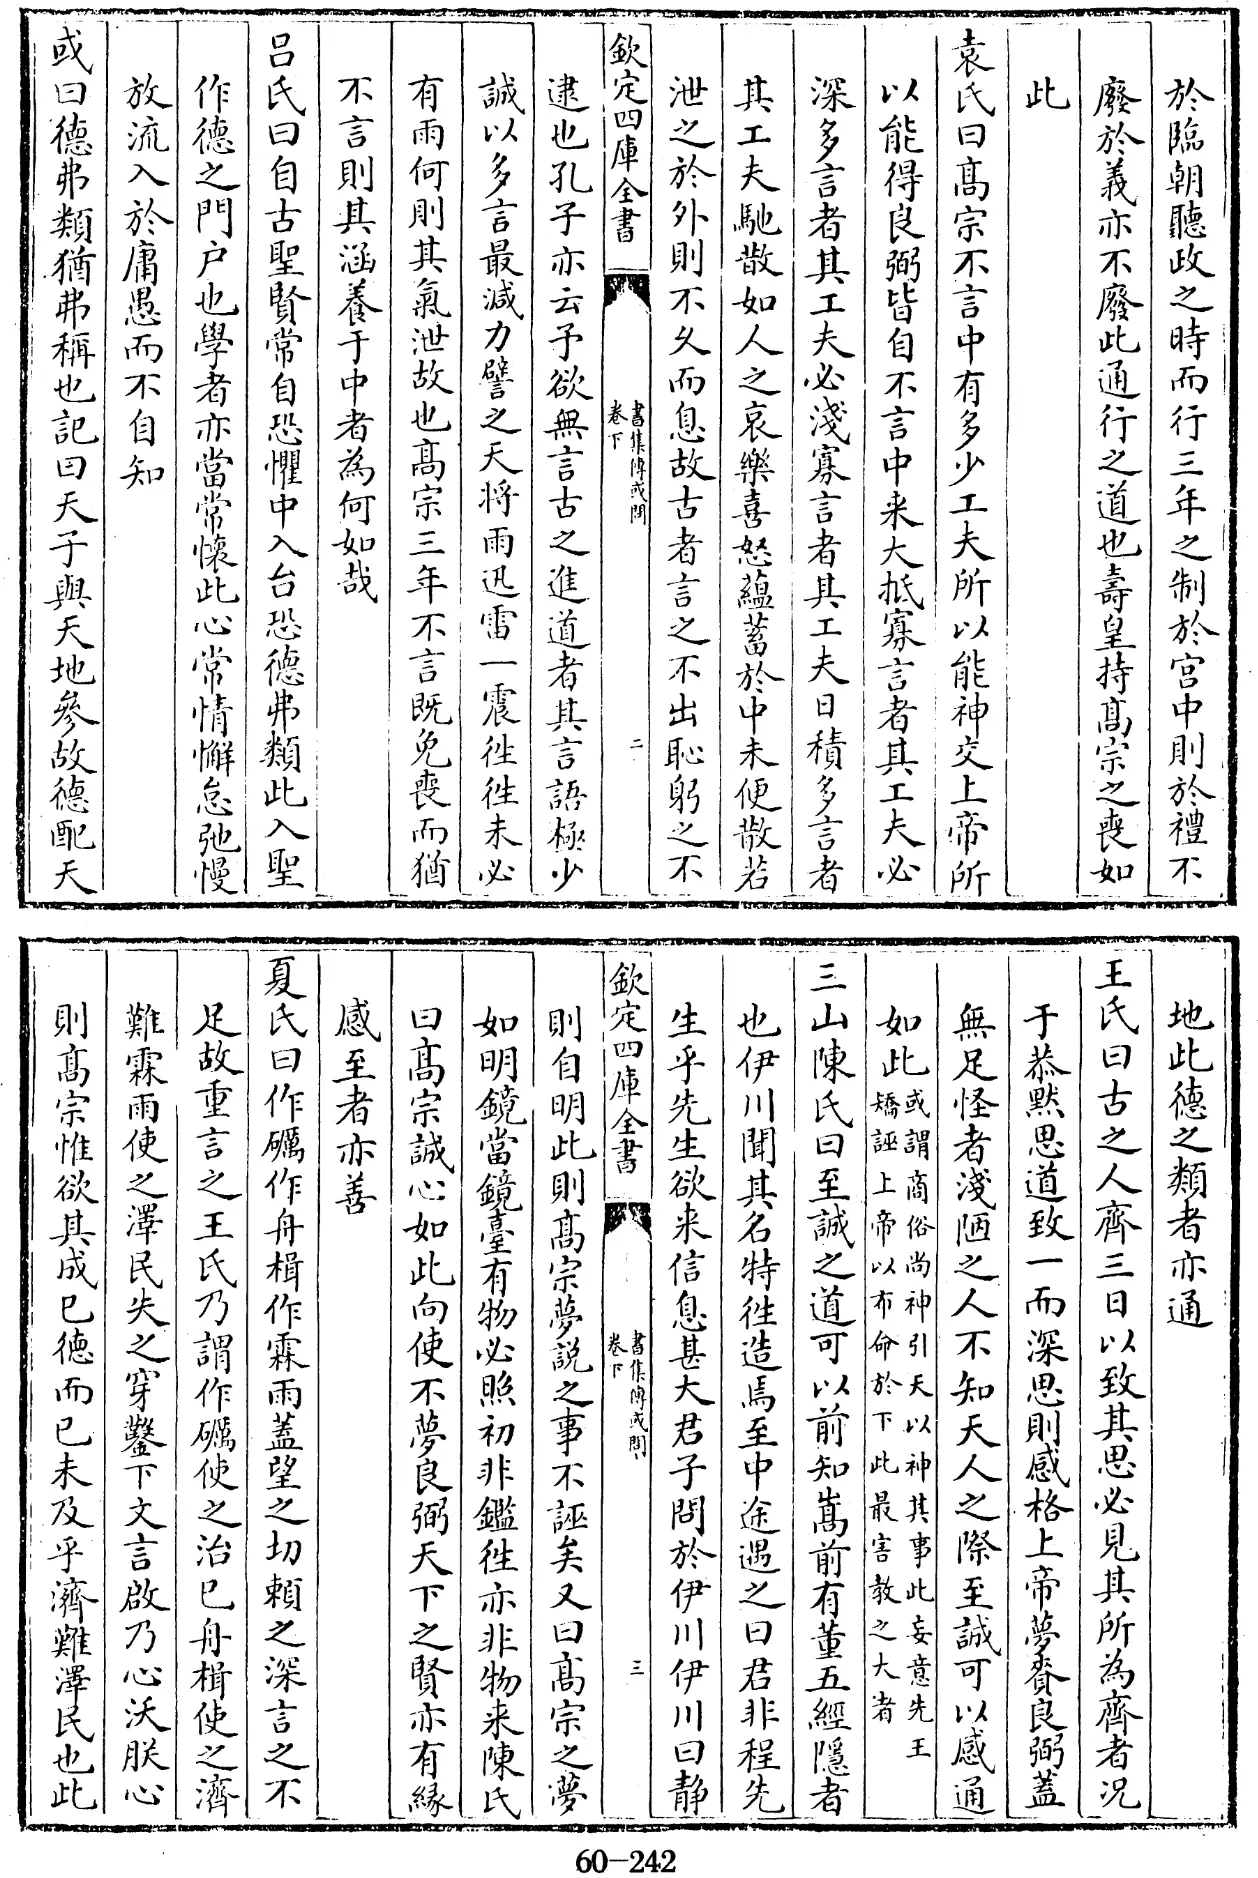 於臨朝聽政之時而行三年之制於宫中則於禮不
廢於義亦不廢此通行之道也壽皇持髙宗之喪如
此
袁氏曰髙宗不言中有多少工夫所以能神交上帝所
以能得良弼皆自不言中来大抵寡言者其工夫必
深多言者其工夫必淺寡言者其工夫日積多言者
其工夫馳散如人之哀樂喜怒蘊蓄於中未便散若
泄之於外則不久而息故古者言之不出恥躬之不
欽定四庫全書
書集傳或問
卷下
二
逮也孔子亦云予欲無言古之進道者其言語極少
誠以多言最減力譬之天将雨迅雷一震徃徃未必
有雨何則其氣泄故也髙宗三年不言既免喪而猶
不言則其涵養于中者為何如哉
吕氏曰自古聖賢常自恐懼中入台恐德弗類此入聖
作德之門户也學者亦當常懷此心常情懈怠弛慢
放流入於庸愚而不自知
或曰德弗類猶弗稱也記曰天子與天地參故德配天
地此德之類者亦通
王氏曰古之人齊三日以致其思必見其所為齊者况
于恭默思道致一而深思則感格上帝夢賚良弼蓋
無足怪者淺陋之人不知天人之際至誠可以感通
如此或謂商俗尚神引天以神其事此妄意先王
矯誣上帝以布命於下此最害教之大者
三山陳氏曰至誠之道可以前知嵩前有董五經隱者
也伊川聞其名特徃造焉至中途遇之曰君非程先
生乎先生欲来信息甚大君子問於伊川伊川曰静
欽定四庫全書
書集傳或問
卷下
三
則自明此則髙宗夢説之事不誣矣又曰髙宗之夢
如明鏡當鏡臺有物必照初非鑑徃亦非物来陳氏
曰髙宗誠心如此向使不夢良弼天下之賢亦有緣
感至者亦善
夏氏曰作礪作舟楫作霖雨蓋望之切頼之深言之不
足故重言之王氏乃謂作礪使之治已舟楫使之濟
難霖雨使之澤民失之穿鑿下文言啟乃心沃朕心
則髙宗惟欲其成已德而已未及乎濟難澤民也此
60-242